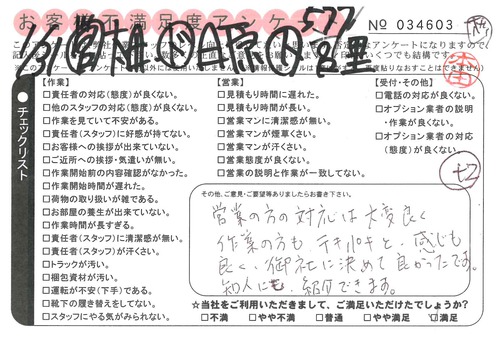 お客様不満足度アンケ
577
No 034603
【作業】
□責任者の対応(態度)が良くない。
□他のスタッフの対応(態度)が良くない。
□作業を見ていて不安がある。
□責任者(スタッフ)に好感が持てない。
□お客様への挨拶が出来ていない。
□ご近所への挨拶・気遣いが無い。
□作業開始前の内容確認がなかった。
□作業開始時間が遅れた。
□荷物の取り扱いが雑である。
□お部屋の養生が出来ていない。
□作業時間が長すぎる。
□責任者(スタッフ)に清潔感が無い。
□責任者(スタッフ)が汗くさい。
□トラックが汚い。
□梱包資材が汚い。
□運転が不安(下手)である。
□靴下の履き替えをしてない。
□スタッフにやる気がみられない。
【営業】
□見積もり時間に遅れた。
□見積もり時間が長い。
□営業マンに清潔感が無い。
□営業マンが煙草くさい。
□営業マンが汗くさい。
□営業態度が良くない。
□営業の説明と作業が一致してない。
【受付・その他】
□電話の対応が良くない。
□オプション業者の説明
・作業が良くない。
□オプション業者の対応
(態度)が良くない。
●チェックリスト
その他、ご意見・ご要望等ありましたらお書き下さい。
営業の方の対応は大変良く
作業の方も、テキパキと、感じも
良く、御社に決めて良かったです。
知人にも、紹介できます。
☆当社をご利用いただきまして、ご満足いただけたでしょうか?
□不満 □やや不満 □普通 □やや満足 ☑満足